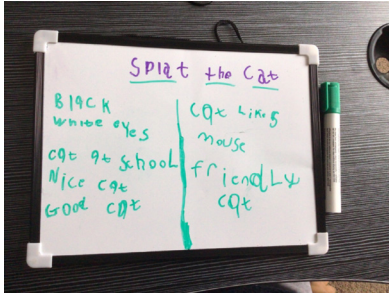 Splat the Cat
Black
white eyes
cat at school
Nice cat
Good cat
cat likes
mouse
friendly
cat